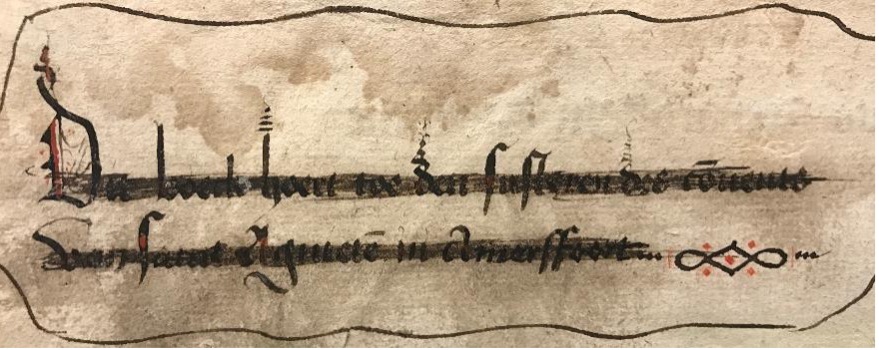 Dit boeck hoert toe den susteren des cōuents
Van sanct Agnietē in Amersffoert